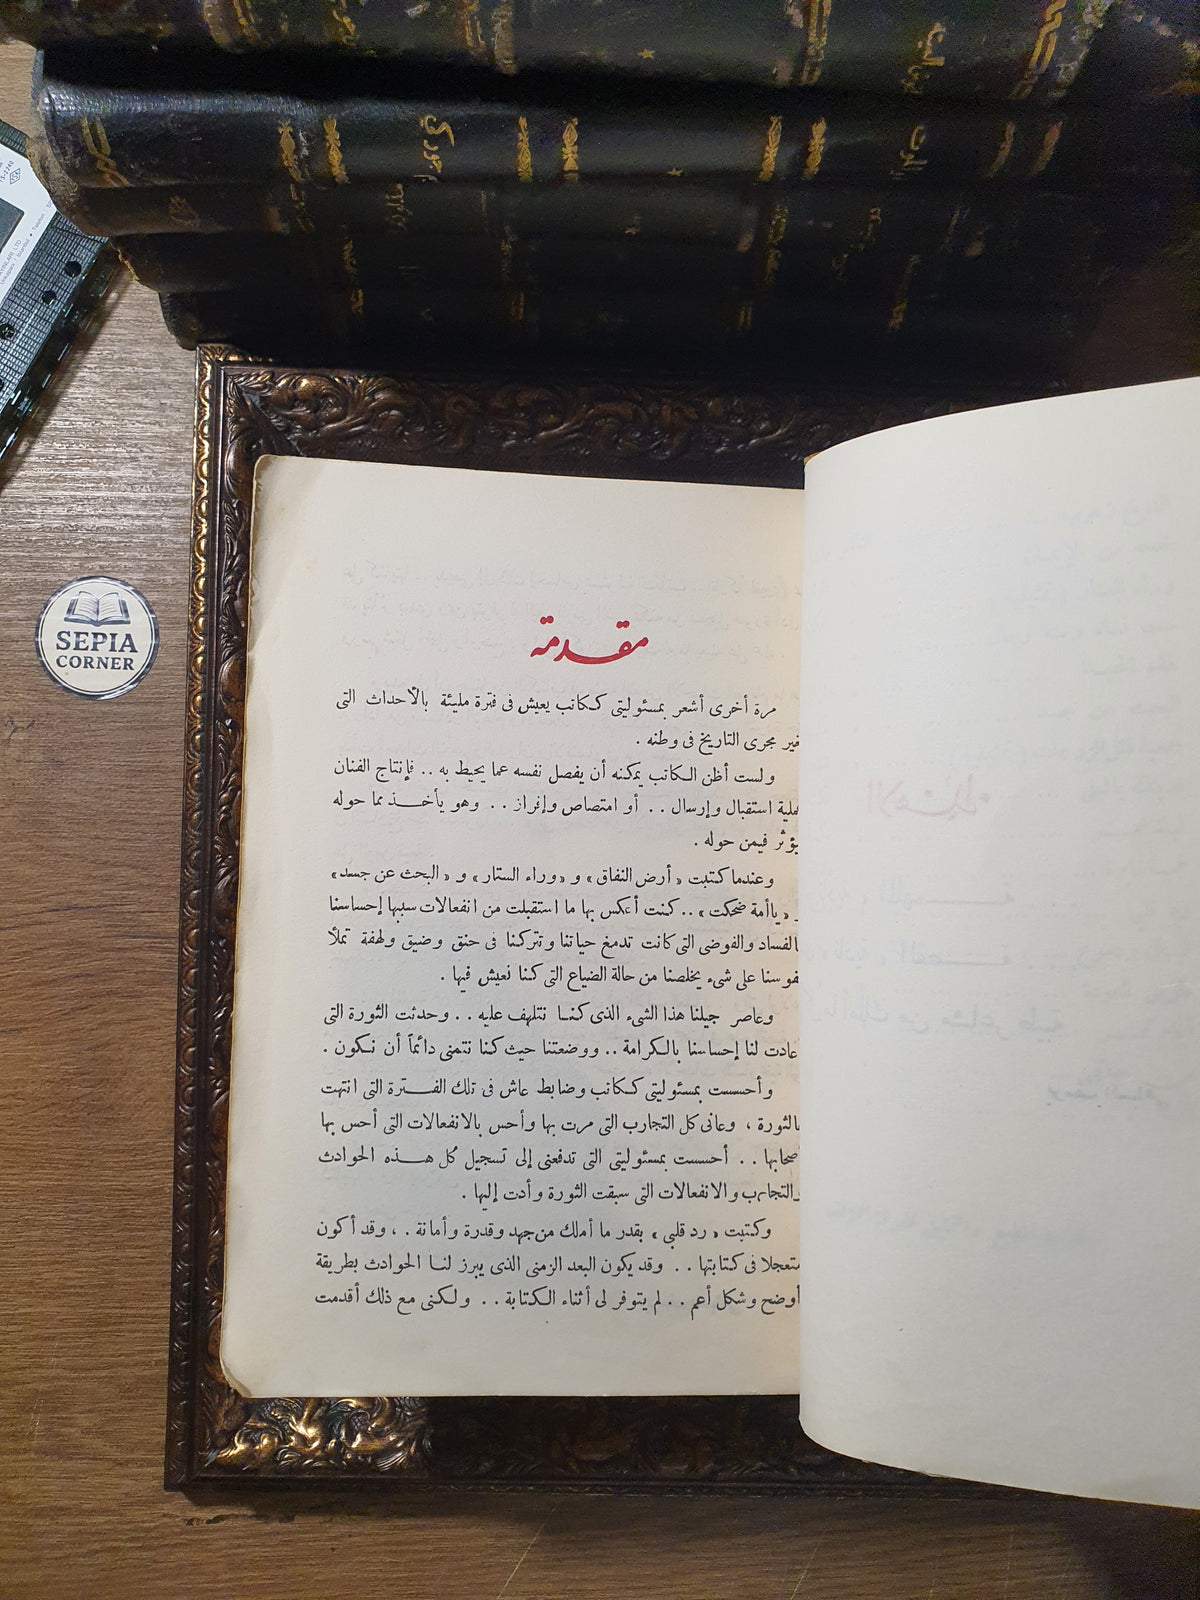 SEPIA
CORNER
مقدمة
مرة أخرى أشعر بمسئوليتى ككاتب يعيش فى فترة مليئة بالأحداث التى
مجرى التاريخ فى وطنه .
ولست أظن الكاتب يمكنه أن يفصل نفسه عما يحيط به .. فإنتاج الفنان
عملية استقبال وإرسال .. أو امتصاص وإفراز .. وهو يأخذ مما حوله
يؤثر فيمن حوله .
وعندما كتبت « أرض النفاق » و « وراء الستار » و « البحث عن جسد »
و « يا أمة ضحكت » .. كنت أعكس بها ما استقبلت من انفعالات سببها إحساسنا
بالفساد والفوضى التى كانت تدمغ حياتنا وتتركنا فى حنق وضيق ولهفة تملأ
نفوسنا على شىء يخلصنا من حالة الضياع التى كنا نعيش فيها .
وعاصر جيلنا هذا الشىء الذى كنا نتلهف عليه .. وحدثت الثورة التى
عادت لنا إحساسنا بالكرامة .. ووضعتنا حيث كنا نتمنى دائماً أن نكون .
وأحسست بمسئوليتى ككاتب وضابط عاش فى تلك الفترة التى انتهت
بالثورة ، وعانى كل التجارب التى مرت بها وأحس بالانفعالات التى أحس بها
أصحابها .. أحسست بمسئوليتى التى تدفعنى إلى تسجيل كل هذه الحوادث
والتجارب والانفعالات التى سبقت الثورة وأدت إليها .
وكتبت « رد قلبى » بقدر ما أملك من جهد وقدرة وأمانة .. وقد أكون
متعجلا فى كتابتها .. وقد يكون البعد الزمنى الذى يبرز لنا الحوادث بطريقة
أوضح وشكل أعم .. لم يتوفر لى أثناء الكتابة .. ولكنى مع ذلك أقدمت